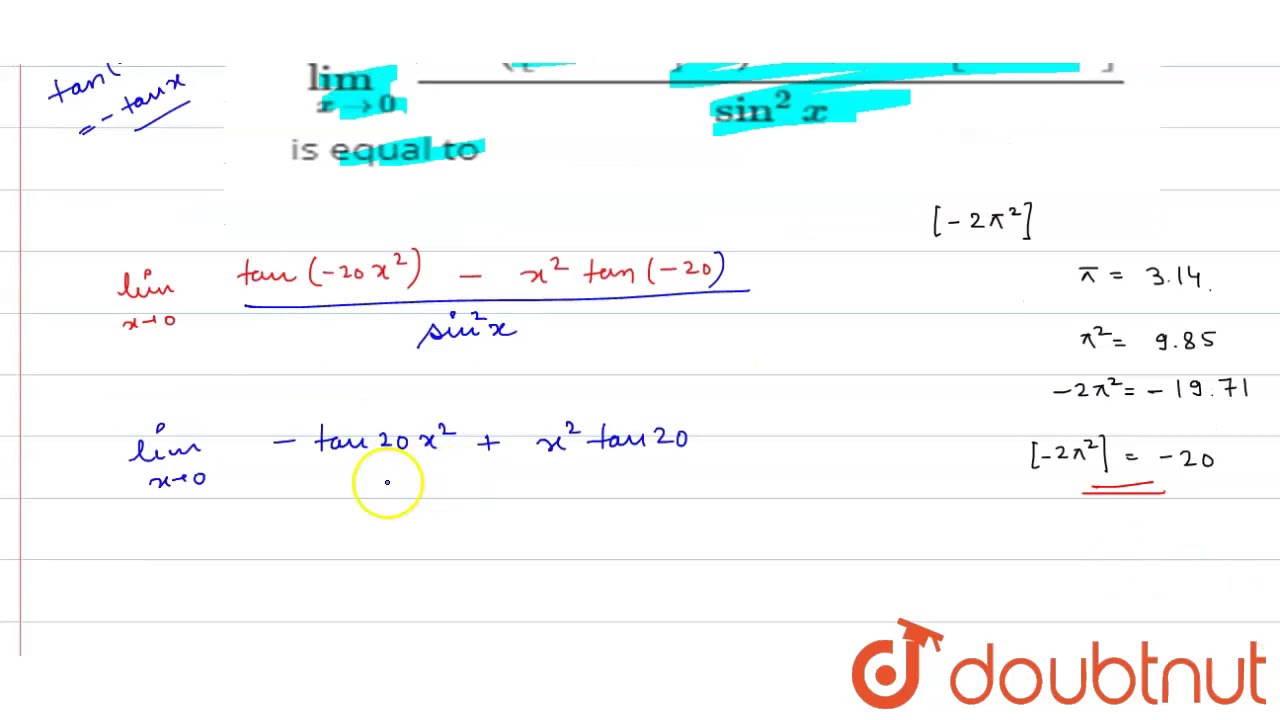 tan(
= - tan x
lim
x → 0
sin² x
is equal to
[-2π²]
lim tan(-20x²) - x² tan(-20)
x→0 sin²x
π = 3.14.
π² = 9.85
-2π² = -19.71
lim - tan 20x² + x² tan 20
x→0
[-2π²] = -20
doubtnut